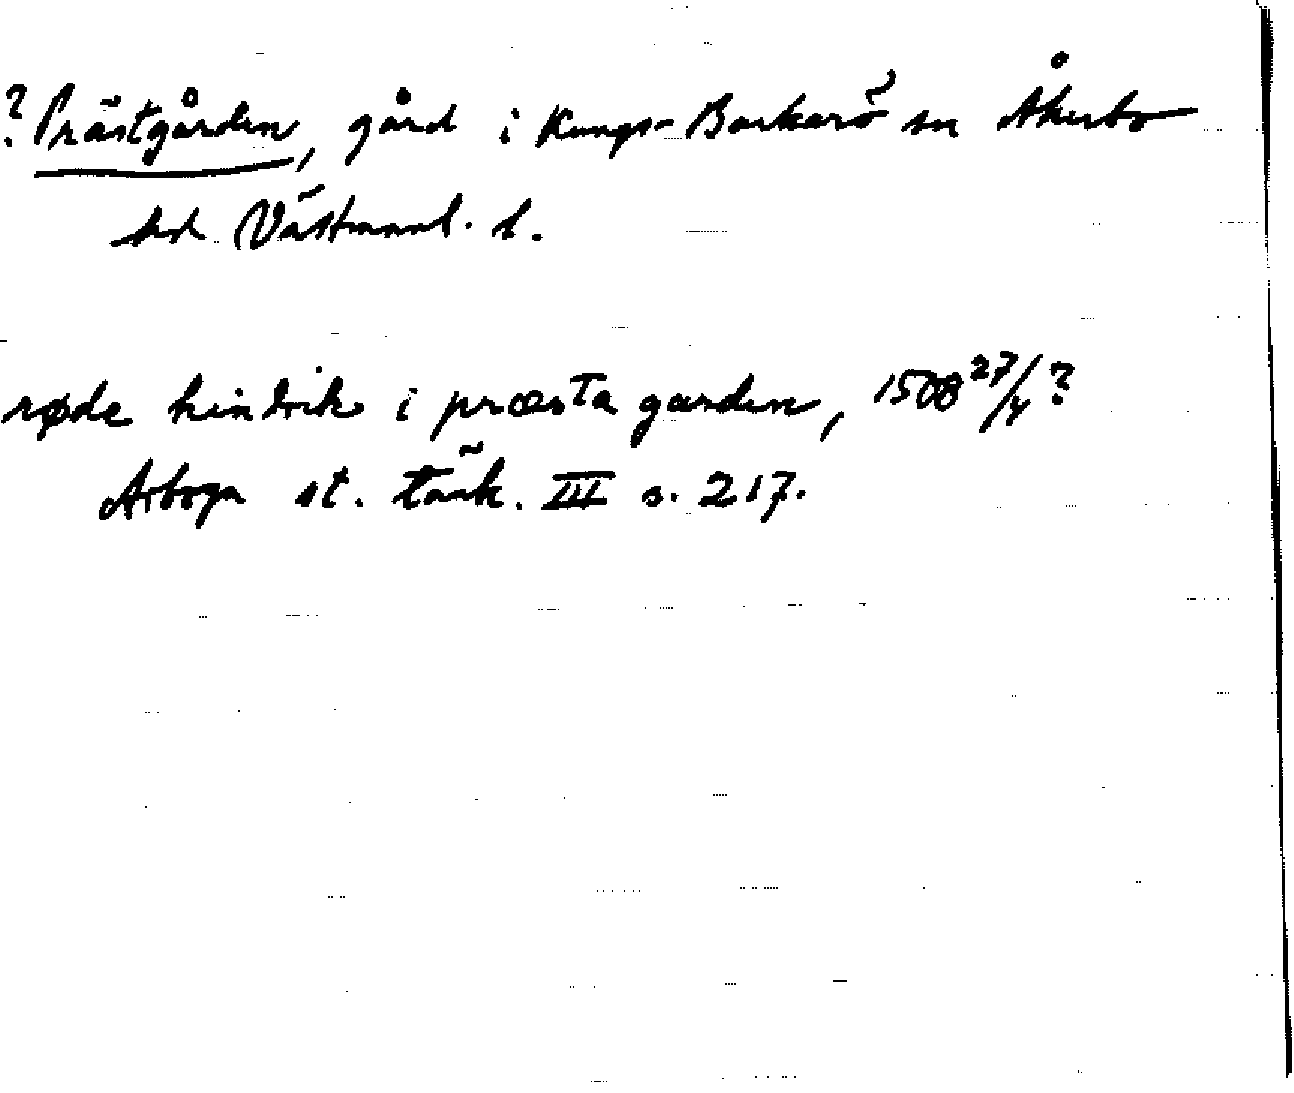 ? Prästgården, gård i Kungs-Barkarö sn Åkerbo
hd Västmanl. l.
røde hindrik i præsta garden, 1508 27/4 ?
Arboga st. tänk. III s. 217.